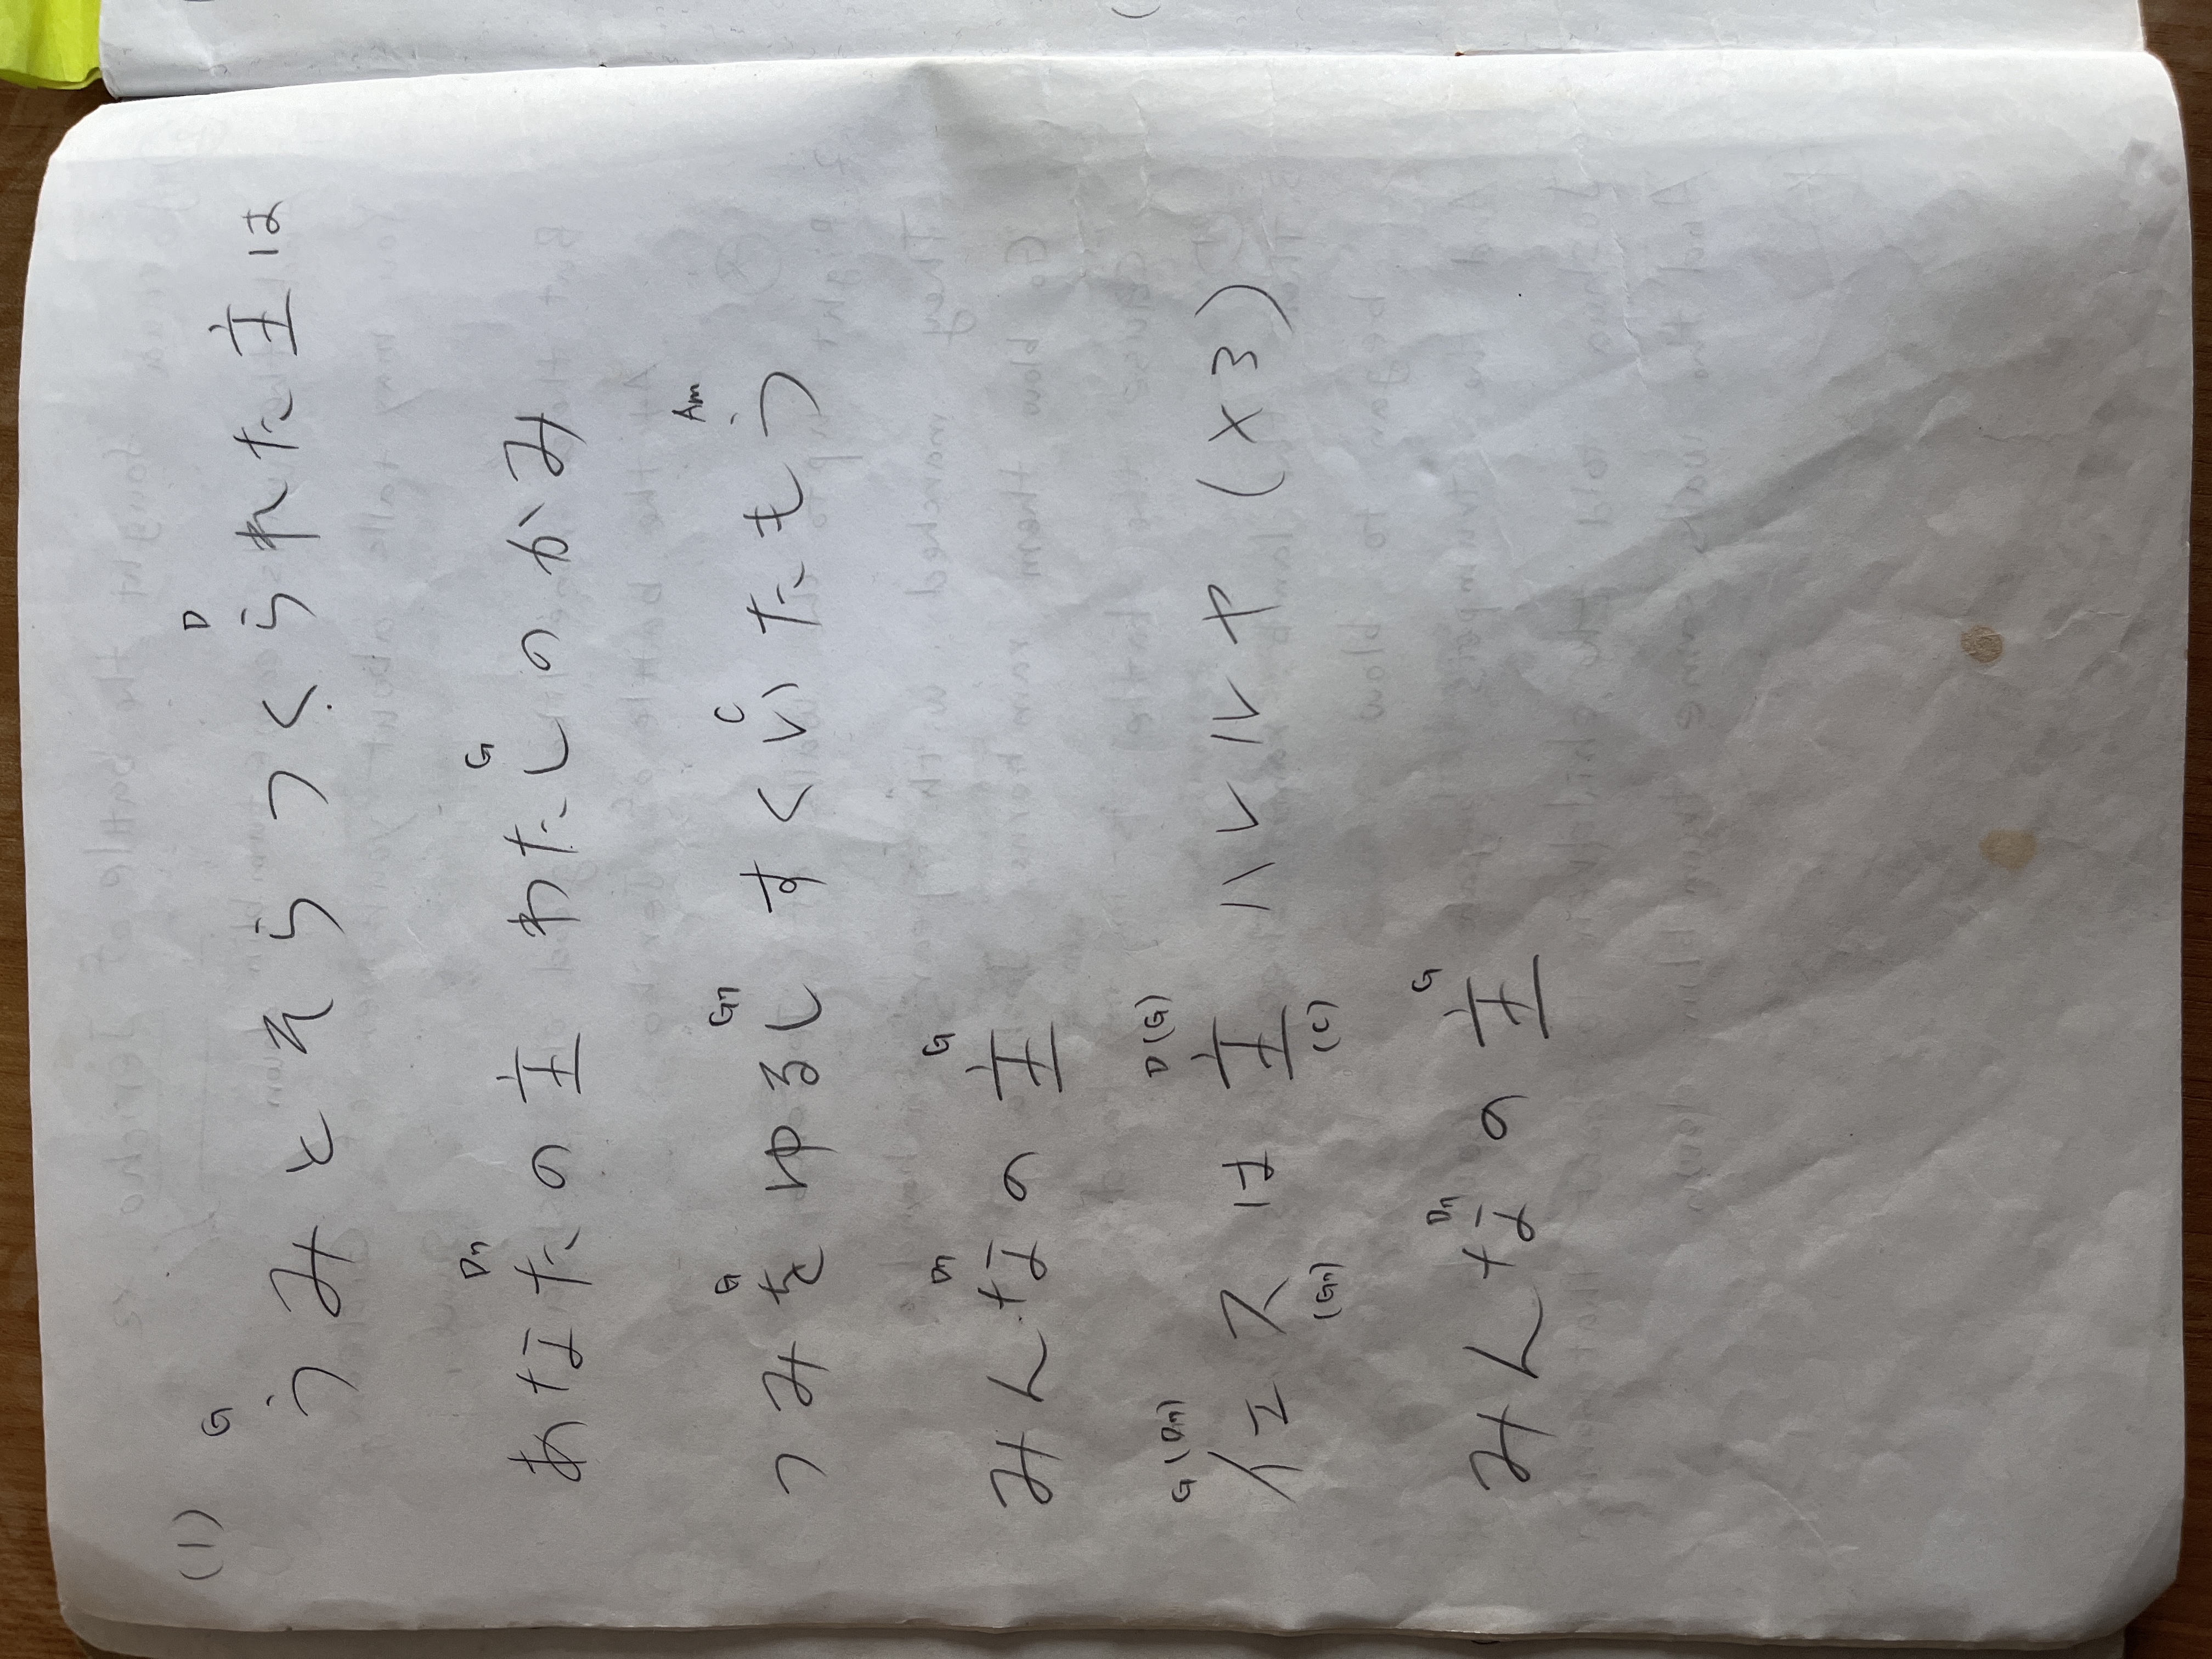 (1) G D
うみとそらつくられた主は
D7 G
あなたの主 わたしのかみ
G G7 C Am
つみをゆるし すくいたもう
D7 G
みんなの主
G(D7) D(G)
イエスは主 ハレルヤ (×3)
(G7) (C)
D7 G
みんなの主